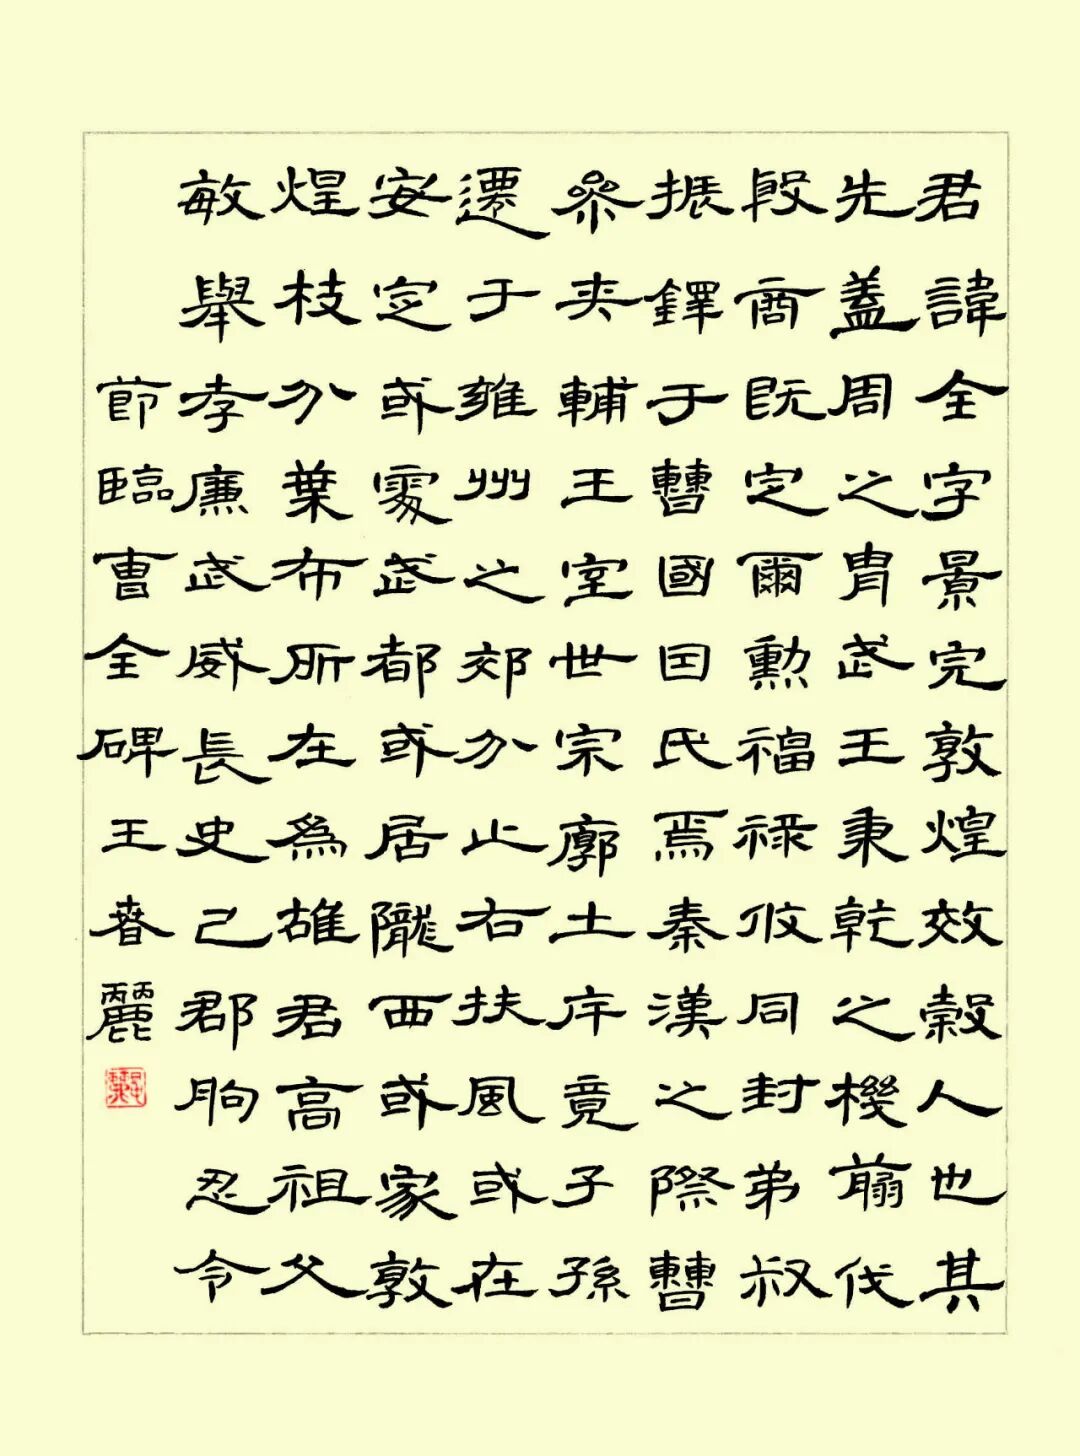 君諱全字景完敦煌效穀人也其
先蓋周之胄武王秉乾之機翦伐
殷商既定爾勳福祿攸同封弟叔
振鐸于曹國因氏焉秦漢之際曹
參夾輔王室世宗廓土斥竟子孫
遷于雍州之郊分止右扶風或在
安定或處武都或居隴西或家敦
煌枝分葉布所在為雄君高祖父
敏舉孝廉武威長史巴郡朐忍令
節臨曹全碑王春麗